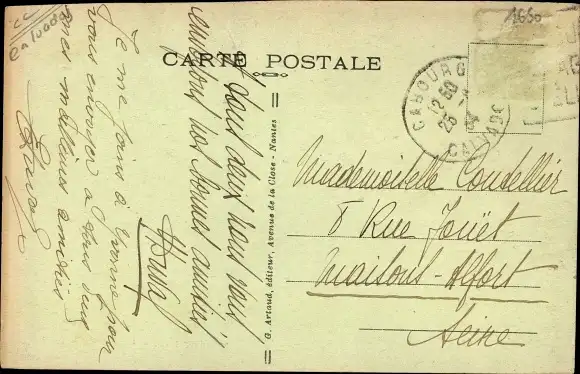 1650
Calvados
CARTE POSTALE
CABOURG
12 50
25
CALVADOS
à vous deux nous vous
envoyons nos bonnes amitiés
Je me joins à Yvonne pour
vous envoyer à tous deux
mes meilleures amitiés
G. Artaud, éditeur, Avenue de la Close - Nantes
Mademoiselle Coutellier
8 Rue Jouët
Maisons-Alfort
Seine